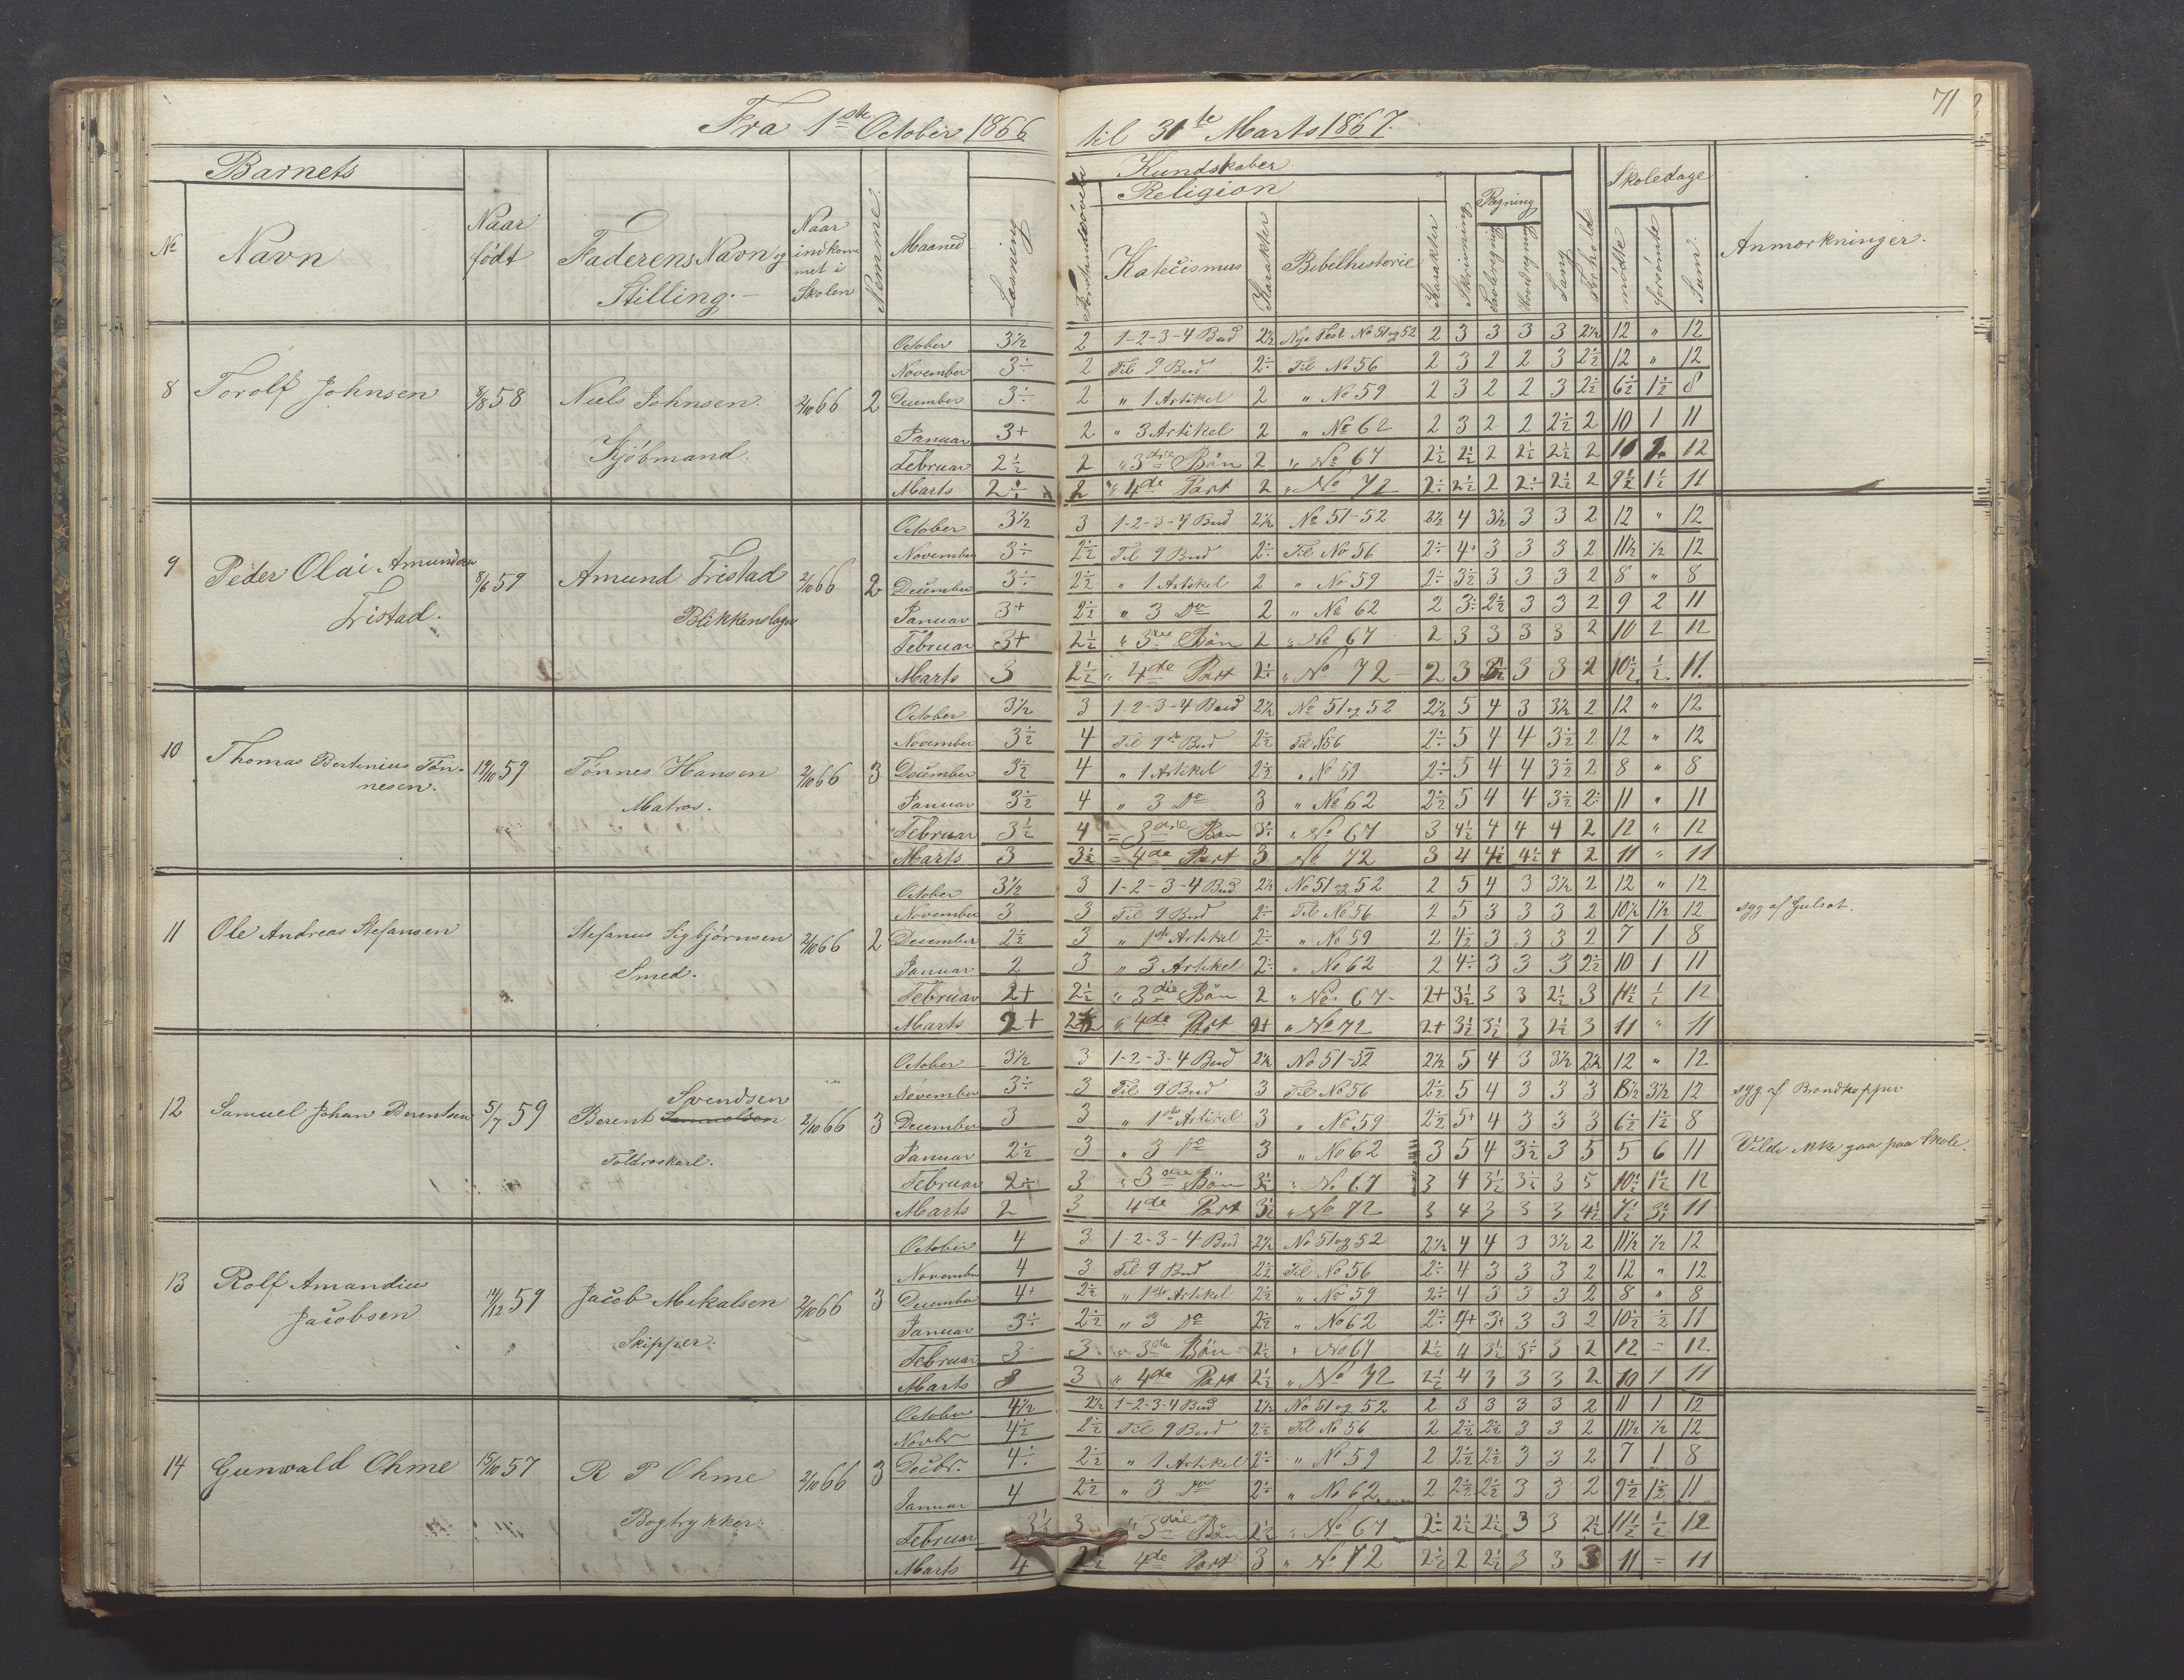 71
Fra 1ste October 1866 til 31te Marts 1867.
Barnets
Kundskaber
Religion
Regning
Skoledage
№ Navn
Naar født
Faderens Navn og Stilling.
Naar indkommet i Skolen
Nemme
Maaned
Læsning
Forstandsøvelse
Katecismus
Karakter
Bibelhistorie
Karakter
Skrivning
Tavleregning
Hovedregning
Sang
Forhold
mødte
forsømte
Sum
Anmærkninger.
8 Torolf Johnsen 58 Niels Johnsen. Kjøbmand. 2/10 66 2
October 3½ 2 1-2-3-4 Bud 2½ Nye Test. No 51 og 52 2 3 3 3 3 2½ 12 " 12
November 3÷ 2 Til 9 Bud 2÷ Til No 56 2 3 2 2 3 2½ 12 " 12
December 3÷ 2 " 1 Artikel 2 " No 59 2 3 2 2 3 2½ 6½ 1½ 8
Januar 3+ 2 " 3 Artikel 2 " No 62 2 3 2 2 2½ 2 10 1 11
Februar 2½ 2 " 3die Bön 2 " No 67 2½ 2½ 2 2½ 2½ 2 10 2 12
Marts 2÷ 2 " 4de Part 2 " No 72 2÷ 2½ 2 2÷ 2½ 2 9½ 1½ 11
9 Peder Olai Amundsen Tristad. 8/6 59 Amund Tristad Blikkenslager 2/10 66 2
October 3½ 3 1-2-3-4 Bud 2½ No 51-52 2½ 4 3½ 3 3 2 12 " 12
November 3÷ 2½ Til 9 Bud 2÷ Til No 56 2÷ 4+ 3 3 3 2 11½ ½ 12
December 3÷ 2½ " 1 Artikel 2 " No 59 2÷ 3½ 3 3 3 2 8 " 8
Januar 3+ 2½ " 3 Do 2 " No 62 2 3÷ 2½ 3 3 2 9 2 11
Februar 3+ 2½ " 3die Bön 2 " No 67 2 3 3 3 3 2 10 2 12
Marts 3 2½ " 4de Part 2÷ " No 72 2 3 3 3 2 10½ ½ 11.
10 Thomas Bertinius Tönnesen. 19/10 59 Tönnes Hansen Matros. 2/10 66 3
October 3½ 3 1-2-3-4 Bud 2½ No 51 og 52 2½ 5 4 3 3½ 2 12 " 12
November 3½ 4 Til 9de Bud 2½ Til N56 2÷ 5 4 4 3½ 2 12 " 12
December 3½ 4 " 1 Artikel 2½ " No 59 2÷ 5 4 4 3½ 2 8 " 8
Januar 3½ 4 " 3 Do 3 " No 62 2½ 5 4 4 3½ 2÷ 11 " 11
Februar 3½ 4 = 3die Bön 3÷ " No 67 3 4½ 4 4 4 2 12 " 12
Marts 3 3½ = 4de Part 3 No 72 3 4 4½ 4½ 4 2 11 " 11
11 Ole Andreas Stefansen Stefanus Sigbjörnsen Smed. 2/10 66 2
October 3½ 3 1-2-3-4 Bud 2½ No 51 og 52 2 5 4 3 3½ 2 12 " 12
November 3 3 Til 9 Bud 2÷ Til No 56 2 5 3 3 3 2 10½ 1½ 12 syg af Gulsot.
December 2½ 3 " 1ste Artikel 2÷ " No 59 2 4½ 3 3 3 2 7 1 8
Januar 2 3 " 3 Artikel 2÷ " No 62 2 4÷ 3 3 3 2½ 10 1 11
Februar 2+ 2½ " 3die Bön 2 " No. 67 2+ 3½ 3 3 2½ 3 11½ ½ 12
Marts 2+ " 4de Part 2+ " No 72 2+ 3½ 3½ 3 2½ 3 11 " 11
12 Samuel Johan Berentsen 5/7 59 Berent Samuelsen Svendsen Toldroskarl. 2/10 66 3
October 3½ 3 1-2-3-4 Bud 2½ No 51-52 2½ 5 4 3 3½ 2½ 12 " 12
November 3÷ 3 Til 9 Bud 3 Til No 56 2½ 5 4 3 3 3 8½ 3½ 12 syg af Brandkopper
December 3 3 " 1ste Artikel 3 " No 59 2½ 5+ 4 3 3 3 6½ 1½ 8
Januar 2½ 3 " 3 Do 3 " No 62 3 5 4 3½ 3 5 5 6 11 Vilde ikke gaa paa Skole.
Februar 2÷ 3 " 3die Bön 3½ " No 67 3 4 3½ 3½ 3 5 10½ 1½ 12
Marts 2 3 4de Part 3½ " No 72 3 4 3 3 3 4½ 7½ 3½ 11
13 Rolf Amandius Jacobsen 14/12 59 Jacob Mikalsen Skipper. 2/10 66 3
October 4 3 1-2-3-4 Bud 2½ No 51 og 52 2½ 4 4 3 3½ 2 11½ ½ 12
November 4 3 Til 9 Bud 2½ Til No 56 2÷ 4 3 3 3 2 12 " 12
December 4+ 2½ " 1ste Artikel 2½ " No 59 2÷ 4 3 3 3 2 8 " 8
Januar 3÷ 2½ " 3 Do 2½ " No 62 2÷ 4+ 3+ 3 3 2 10½ ½ 11
Februar 3 3 " 3de Bön 2½ " No 67 2½ 4 3½ 3÷ 3 2 12 = 12
Marts 3 3 " 4de Part 2½ " No 72 2½ 4 3 3 3 2 10 1 11
14 Gunvald Ohme 15/10 57 R P Ohme Bogtrykker. 2/10 66 3
October 4½ 2½ 1-2-3-4 Bud 2½ No 51 og 52 2 3 3 3 3 2 11 1 12
Novbr 4½ 2½ Til 9 Bud 2½ Til No 56 2 2½ 2½ 3 3 2 11½ ½ 12
Decbr. 4÷ 2½ " 1 Artikel 2÷ " No 59 2 2½ 2½ 3 3 2 7 1 8
Januar 4 2½ " 3 Do 2÷ " No 62 2 2½ 2½ 3 3 2 9½ 1½ 11
Februar 3½ 3 " 3die Bön 2½ " No 67 2÷ 2½ 2½ 3 3 2½ 11½ ½ 12
Marts 4 2½ 4de Part 3 " No 72 2½ 2 2½ 3 3 3 11 = 11